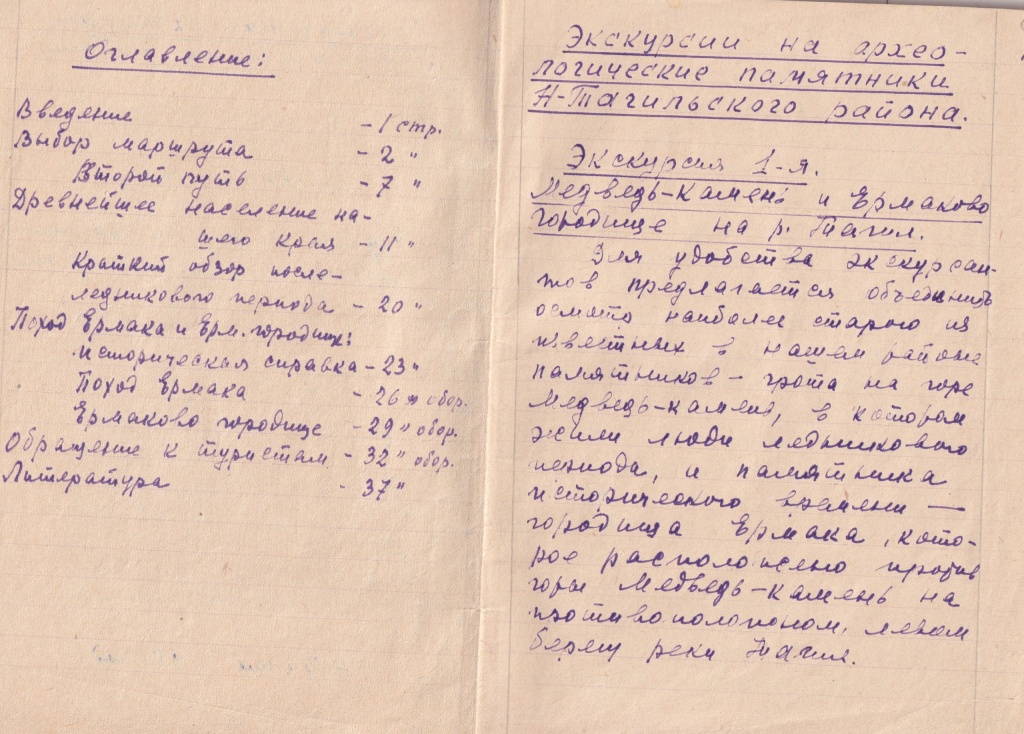 Оглавление:
Введение - 1 стр.
Выбор маршрута - 2 "
Второй путь - 7 "
Древнейшее население на-
шего края - 11 "
Краткий обзор после-
ледникового периода - 20 "
Поход Ермака и Ерм. городищ:
историческая справка - 23 "
Поход Ермака - 26 " обор.
Ермаково городище - 29 " обор.
Обращение к туристам - 32 " обор.
Литература - 37 "
Экскурсии на архео-
логические памятники
Н-Тагильского района.
Экскурсия 1-я.
Медведь-Камень и Ермаково
городище на р. Тагил.
Для удобства экскурсан-
тов предлагается объединить
осмотр наиболее старого из
известных в нашем районе
памятников - грота на горе
Медведь-камень, в котором
жили люди ледникового
периода, и памятника
исторического времени —
городища Ермака, кото-
рое расположено против
горы Медведь-Камень на
противоположном, левом
берегу реки Тагил.